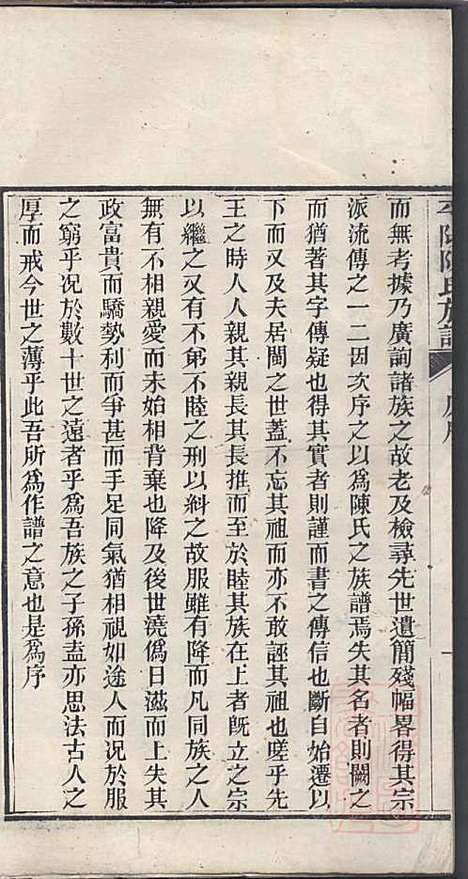 而無考據乃廣詢諸族之故老及檢尋先世遺簡殘幅畧得其宗
派流傳之一二因次序之以爲陳氏之族譜焉失其名者則闕之
而猶著其字傳疑也得其實者則謹而書之傳信也斷自始遷以
下而又及夫居閩之世蓋不忘其祖而亦不敢誣其祖也嗟乎先
王之時人人親其親長其長推而至於睦其族在上者旣立之宗
以繼之又有不弟不睦之刑以糾之故服雖有降而凡同族之人
無有不相親愛而未始相背棄也降及後世澆僞日滋而上失其
政富貴而驕勢利而爭甚而手足同氣猶相視如途人而况於服
之窮乎况於數十世之遠者乎爲吾族之子孫盍亦思法古人之
厚而戒今世之薄乎此吾所爲作譜之意也是爲序